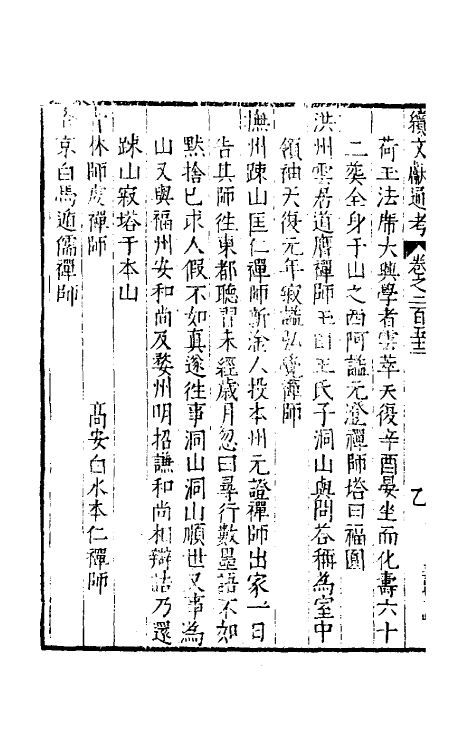 續文獻通考 卷之二百
荷玉法席大興學者雲萃天復辛酉晏坐而化壽六十
二葬全身于山之西阿謚元澄禪師塔曰福圓
洪州雲居道膺禪師玉田王氏子洞山與問荅稱為室中
領袖天復元年寂謚弘覺禪師
撫州踈山匡仁禪師新淦人投本州元證禪師出家一日
告其師徃東都聽習未經歲月忽曰尋行數墨語不如
默捨已求人假不如真遂徃事洞山洞山順世又事為
山又與福州安和尚及婺州明招謙和尚相辯詰乃還
踈山寂塔于本山
林師虔禪師 高安白水本仁禪師
京白馬遁儒禪師